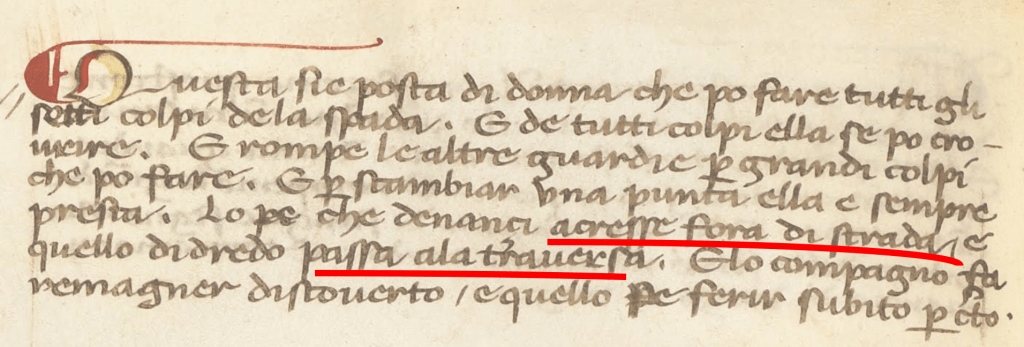 Questa sie posta di donna che po fare tutti gli
setti colpi de la spada. E de tutti colpi ella se po cro-
vrire. E rompe le altre guardie p grandi colpi
che po fare. E p scambiar una punta ella e sempre
presta. Lo pe che denanci acresse fora di strada, e
quello di dredo passa ala trauersa. E lo compagno fa
remagner discouerto / e quello pe ferir subito p cto.